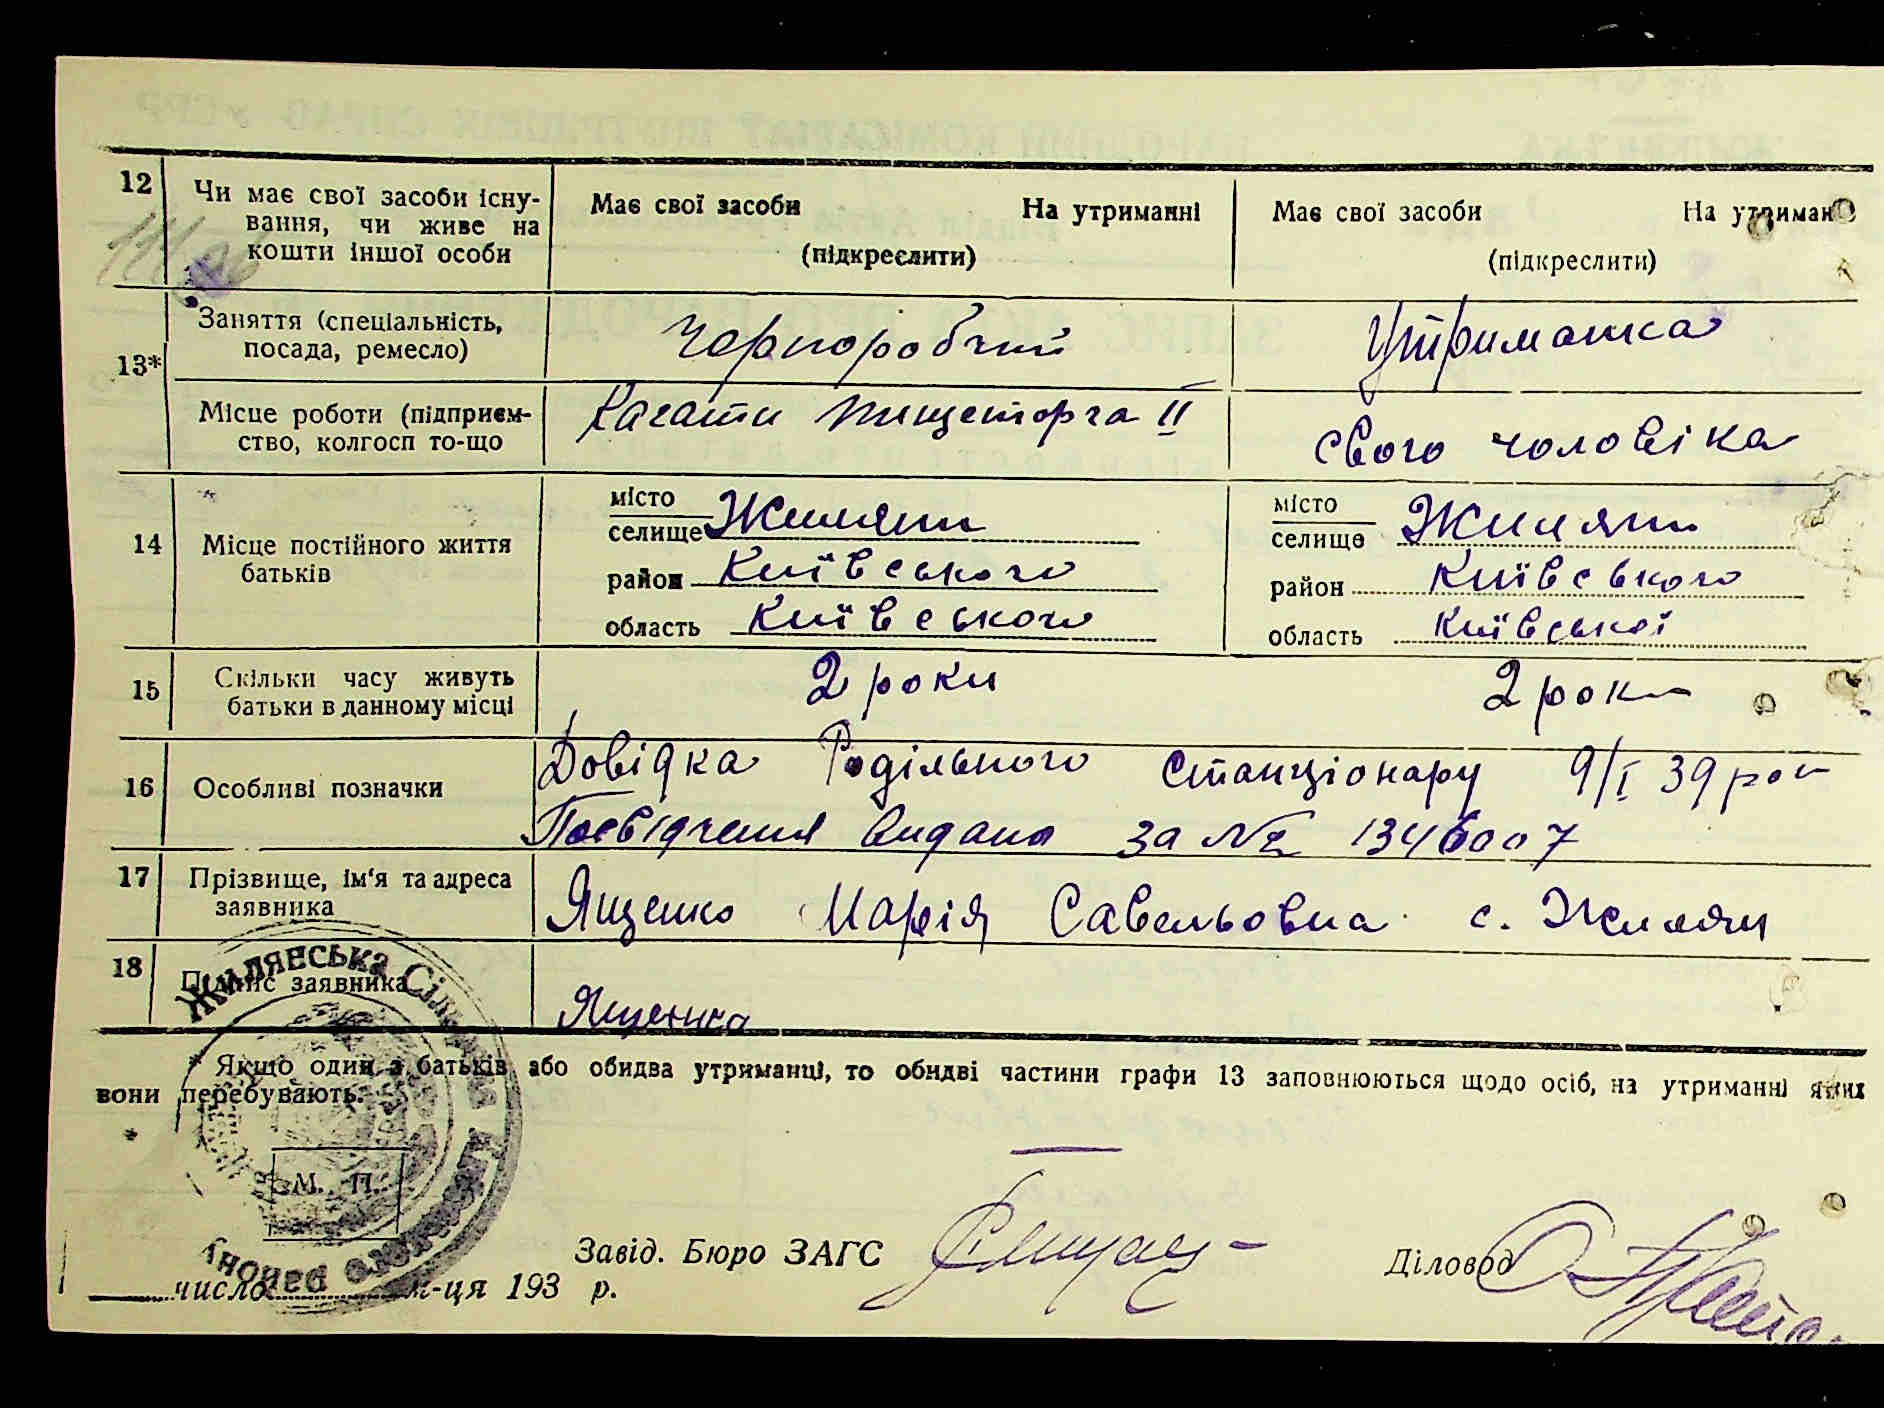 12 Чи має свої засоби існу- Має свої засоби На утриманні Має свої засоби На утриманн
вання, чи живе на
кошти іншої особи (підкреслити) (підкреслити)
13* Заняття (спеціальність, Чорноробчий Утриманка
посада, ремесло)
Місце роботи (підприєм- Кагати пищеторга II свого чоловіка
ство, колгосп то-що
14 Місце постійного життя
батьків
місто
селище Жиляни
район Київського
область Київського
місто
селище Жиляни
район Київського
область Київської
15 Скільки часу живуть 2 роки 2 роки
батьки в данному місці
16 Особливі позначки Довідка Родільного Станціонару 9/I 39 рок
Посвідчення видано за № 1346007
17 Прізвище, ім'я та адреса Ященко Марія Савельовна с. Жиляни
заявника
18 Підпис заявника Ященко
* Якщо один з батьків або обидва утриманці, то обидві частини графи 13 заповнюються щодо осіб, на утриманні яких
вони перебувають.
Жилянська Сільська району
М. П.
Завід. Бюро ЗАГС Діловод
число м-ця 193 р.